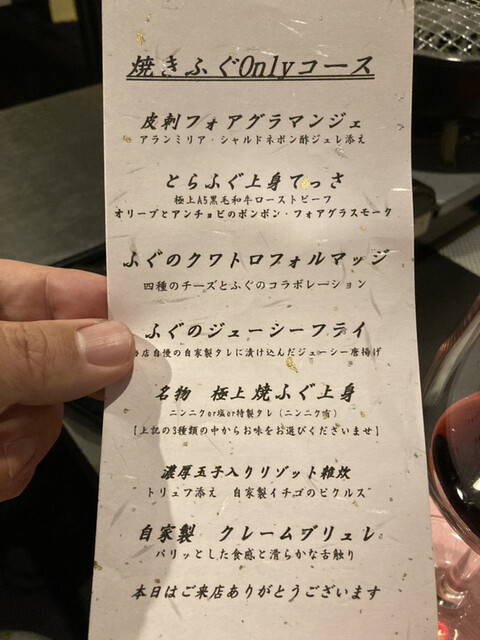 焼きふぐOnlyコース
皮刺フォアグラマンジェ
アランミリア・シャルドネポン酢ジュレ添え
とらふぐ上身てっさ
極上A5黒毛和牛ローストビーフ
オリーブとアンチョビのボンボン・フォアグラスモーク
ふぐのクワトロフォルマッジ
四種のチーズとふぐのコラボレーション
ふぐのジューシーフライ
店自慢の自家製タレに漬け込んだジューシー唐揚げ
名物 極上焼ふぐ上身
ニンニクor塩or特製タレ（ニンニク有）
【上記の3種類の中からお味をお選びくださいませ】
濃厚玉子入りリゾット雑炊
トリュフ添え 自家製イチゴのピクルス
自家製 クレームブリュレ
パリッとした食感と滑らかな舌触り
本日はご来店ありがとうございます